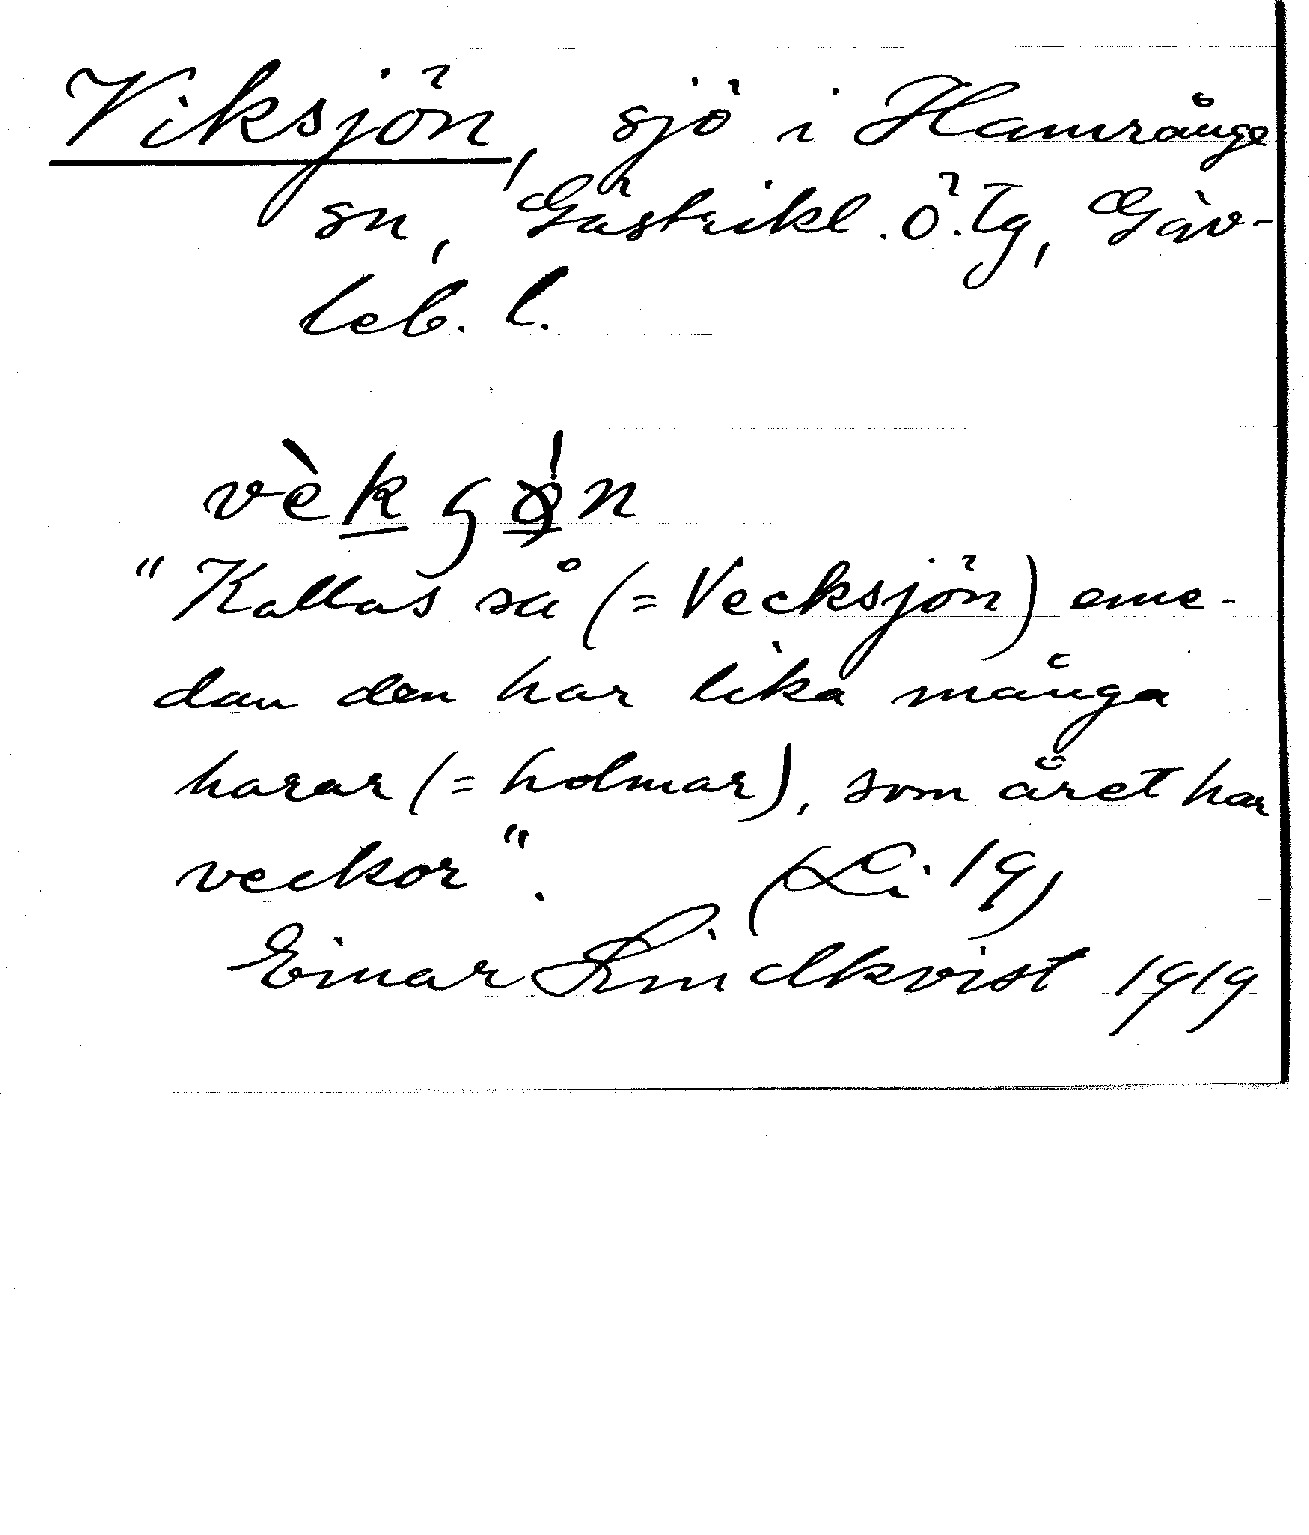 Viksjön, sjö i Hamrånge
sn, Gästrikl. ö. tg, Gäv-
leb. l.
"Kallas så (= Vecksjön) eme-
dan den har lika många
harar (= holmar), som året har
veckor". (Li 19)
Einar Lindkvist 1919